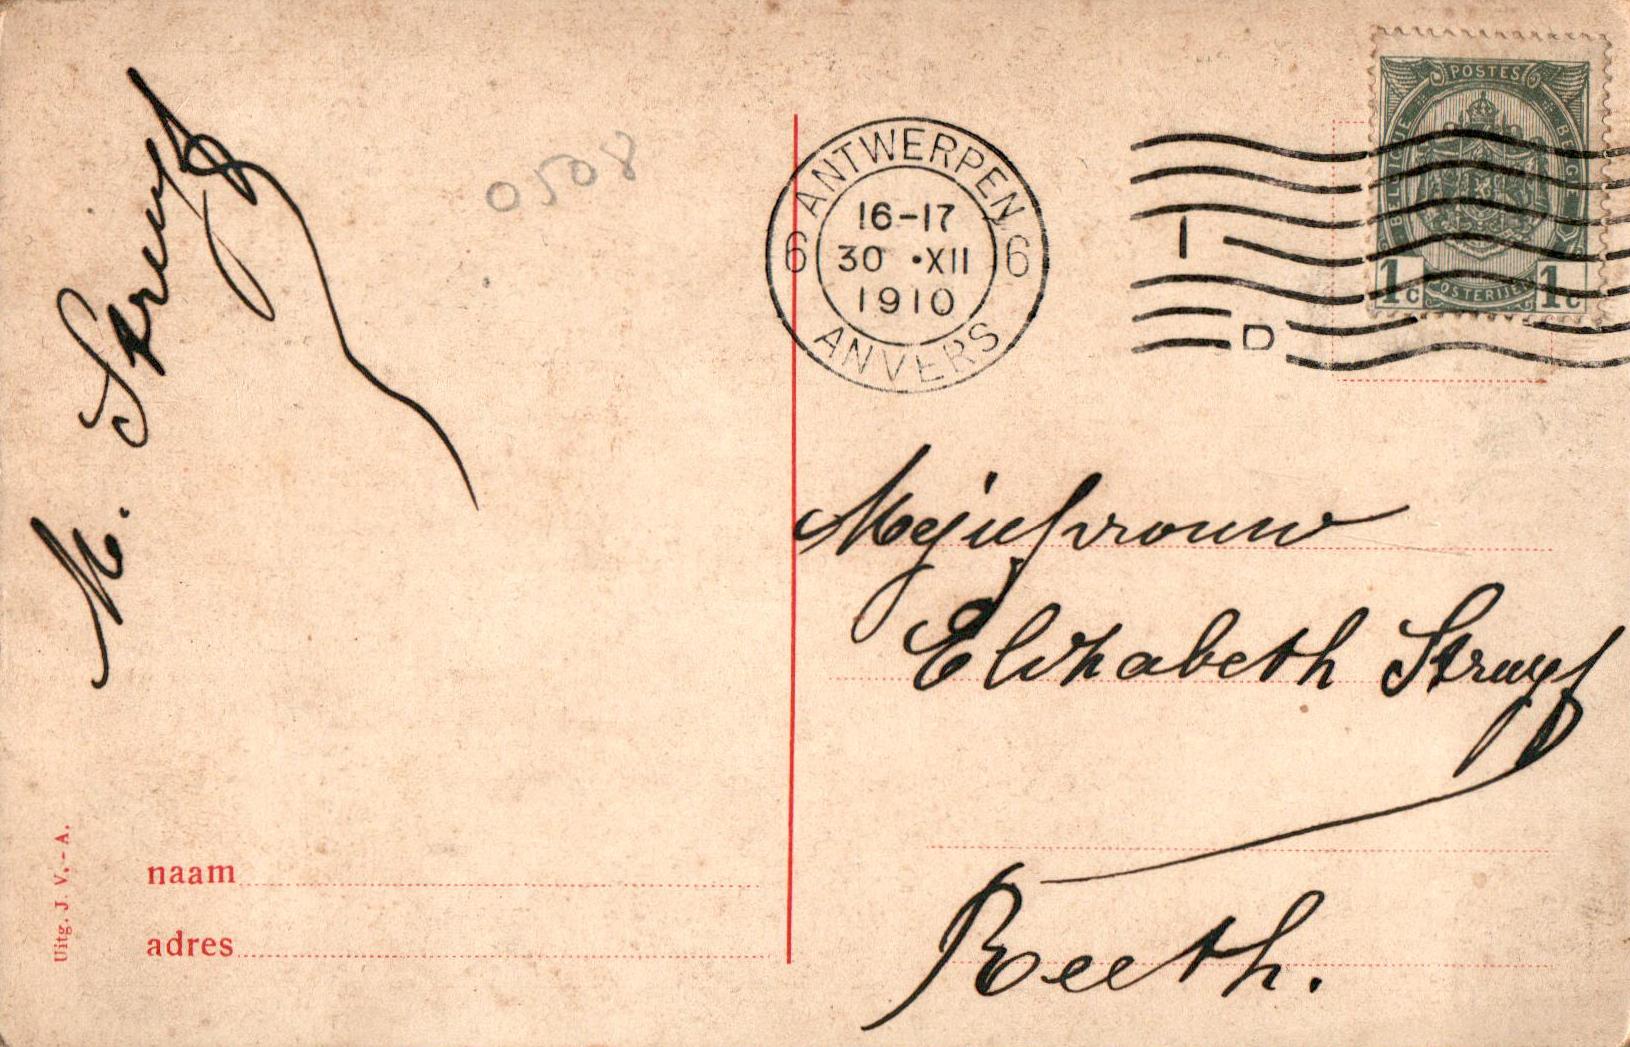 M. Struyf
0508
ANTWERPEN
6 16-17 6
30 •XII
1910
ANVERS
1 D
POSTES
BELGIQUE BELGIË
POSTERIJEN
1c 1c
Mejufvrouw
Elizabeth Struyf
Reeth.
naam
adres
Uitg. J. V. - A.